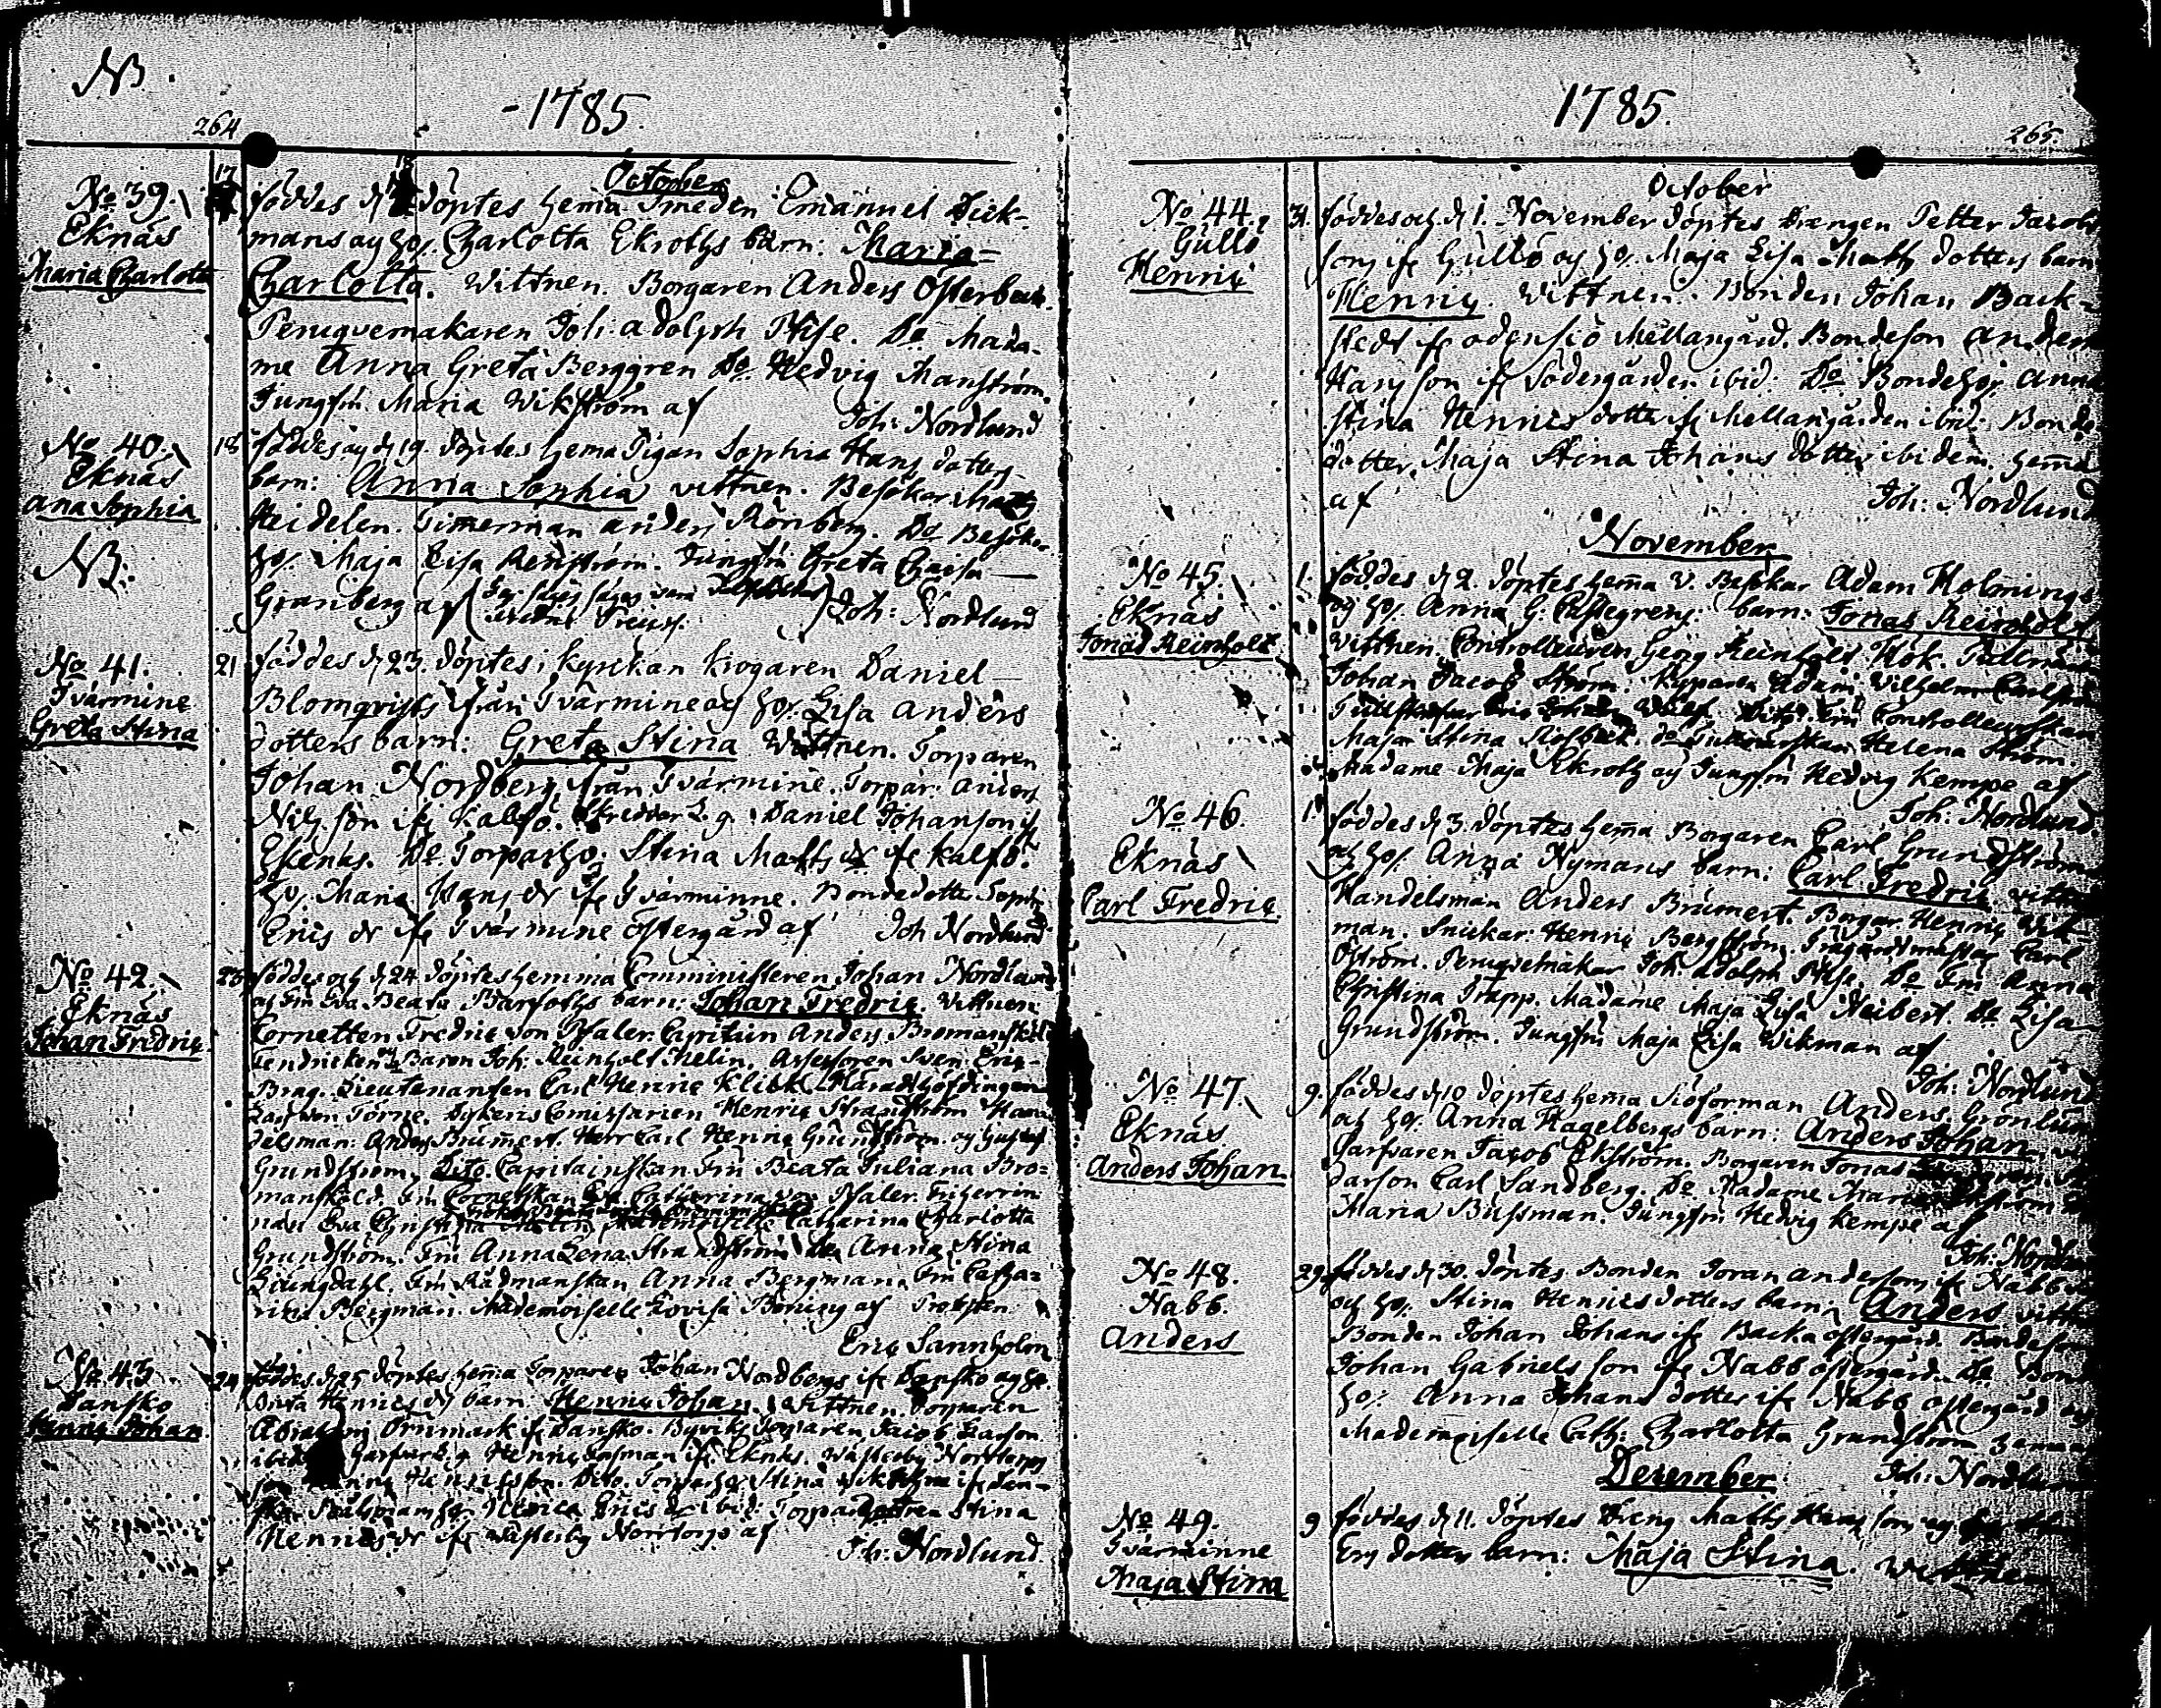 NB.
264
-1785.
October
No 39.
Eknäs
Maria Charlotta
17
föddes d 18 döptes hema Smeden Emanuel Dick-
mans og ho. Charlotta Ekroths barn: Maria-
Charlotta. Wittnen. Borgaren Anders Österback.
Peruqvemakaren Joh: Adolph Pilse. Do Mada-
me Anna Greta Berggren Do Hedvig Manström.
Jungfru Maria Wikström af
Joh: Nordlund
No 40.
Eknäs
Ana Sophia
NB.
18
föddes og d 19. döptes hema Pigan Sophia Hans dotters
barn: Anna Sophia vittnen. Besökar Matts
Heidelen. Timerman Anders Rönberg. Do Besökar
ho. Maja Lisa Renström. Jungfru Greta Caisa
Granberg af
Joh: Nordlund
No 41.
Tvärmine
Greta Stina
21
föddes d 23. döptes i kyrckan krogaren Daniel
Blomqvists från Tvärmine og ho. Lisa Anders
dotters barn: Greta Stina Wittnen. Torparen
Johan Nordberg från Tvärmine. Torpar: Anders
Nils son ifr Kalfö. Skreddar L. g. Daniel Johanson if
Ekenäs. Do Torpar ho. Stina Matts dr ifr Kalfö.
ho. Maria Hans dr ifr Tvärminne. Bondedotter Sophi
Erics dr ifr Tvärmine östergård af Joh Nordlund
No 42.
Eknäs
Johan Fredric
23
föddes och d 24 döptes hemma Comministeren Johan Nordlunds
og Fru Eva Beata Barfoths barn: Johan Fredric. Vittnen:
Cornetten Fredric von Psaler. Capitain Anders Bromanskiöld
Fendricken Baron Joh: Reinholt Mellin. Assessoren Sven Eric-
Brag. Lieutenanten Carl Henric Klick. Häradshöfdingen
Lars von Törne. Dykeris Comissarien Henric Strandström Han-
delsman: Anders Brumert. Herr Carl Henric Grundström og Gustaf
Grundström. Dito Capitainskan Fru Beata Juliana Bro=
manskiöld. Fru Cornetskan Eva Catharina von Psaler. Friherrin
nan Eva Christina Mellin Mademoiselle Catharina Charlotta
Grundström. Fru Anna Lena Strandström Do Anna Stina
Liungdahl. Fru Rådmanskan Anna Bergman. Fru Catha=
rina Bergman. Mademoiselle Lovisa Böning af Probsten
Eric Sannholm
No 43.
Dansko
Henric Johan
24
föddes d 25 döptes hema Torparen Johan Nordbergs ifr Dansko og ho.
Brita Henrics dr barn: Henric Johan. Vittnen. Torparen
Abraham Ornmark ifr Dansko. Byviks Torparen Jacob Larson
ibid. Garfvar L. g. Henric Losman ifr Eknäs. Wästerby Norrtorps
Henricsson. Dito. Torpar ho. Stina ifr Dan-
sko. ho. Ulrica Erics dr ibid: Torpar dottren Stina
Henrics dr ifr Westerby Norrtorp af
Joh: Nordlund.
1785.
265.
October
No 44.
Gullö
Henric
31.
föddes och d 1. November döptes Drengen Petter Jacobs
sons ifr Gullö og ho. Maja Lisa Matts dotters barn
Henric. Wittnen. Bonden Johan Back-
stedt ifr Odensiö Mellangård. Bondeson Anders
Hans son ifr Södergården ibid: Do Bonde ho. Anna
Stina Henrics dotter ifr Mellangården ibid: Bonde
dotter. Maja Stina Johans dotter ibidem. hema
af
Joh: Nordlund
November
No 45.
Eknäs
Jonas Reinholt
1.
föddes d 2. döptes hema V. Besökar Adam Holmings
og ho. Anna G: Castegrens: barn: Jonas Reinholt
Vittnen. Controlleuren Georg Reinholt Hök. Tullnär
Johan Jacob Ström. Kyparen Adam Vilhelm Carlsted
Controlleurskan
Maja Stina Do Helena Ström.
Madame Maja Ekroth og Jungfru Hedvig Kempe af
Joh: Nordlund.
No 46.
Eknäs
Carl Fredric
1.
föddes d 3. döptes hema Borgaren Carl Grundström
och ho. Anna Nymans barn: Carl Fredric vittn
Handelsman Anders Brumert. Borgar. Henric Wik-
man. Snickar: Henric Bergström. Trägårdsmästar Carl
Öström. Peruqvemakar Joh: Adolph Pilse. Do Fru Anna
Christina Trapp. Madame Maja Lisa Neibert. Do Lisa
Grundström. Jungfru Maja Lisa Wikman af
Joh: Nordlund
No 47.
Eknäs
Anders Johan
9.
föddes d 10 döptes hema Siöforman Anders Grönlun
og ho. Anna Hagelbergs barn: Anders Johan
Garfvaren Jacob Ekström. Borgaren Jonas
darson Carl Sandberg. Do Madame Maria Ekström
Maria Busman. Jungfru Hedvig Kempe af
Joh: Nordlun
No 48.
Nabb.
Anders
29.
föddes d 30. döptes Bonden Joran Andersons ifr Nabb
och ho. Stina Henrics dotters barn. Anders vittn
Bonden Johan Johans ifr Backa östergård. Bondeson
Johan Gabriels son ifr Nabb östergård. Do Bond
ho. Anna Johans dotter ifr Nabb östergård og
Mademoiselle Cath: Charlotta Grundström
Joh: Nordlun
December
No 49.
Tvärminne
Maja Stina
9
föddes d 11. döptes Dreng Matts Hans son og
Ers dotters barn: Maja Stina. Wittnen